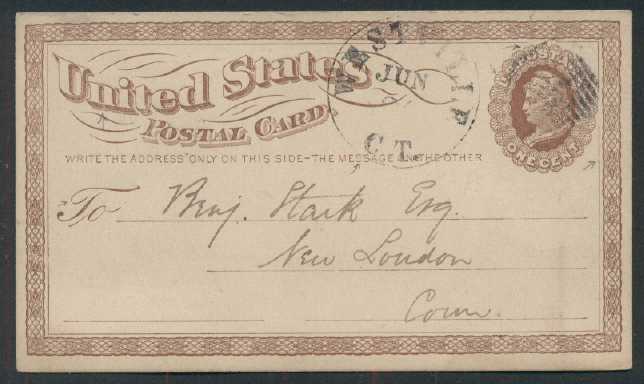 United States
POSTAL CARD.
WESTVILLE
JUN
C.T.
U.S. POSTAGE
ONE CENT
WRITE THE ADDRESS ONLY ON THIS SIDE-THE MESSAGE ON THE OTHER
To Benj. Stark Esq.
New London
Conn.